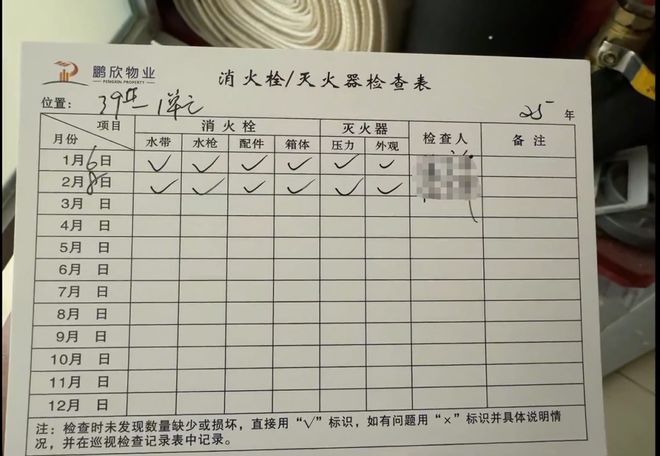 鹏欣物业 消火栓/灭火器检查表
PENGXIN PROPERTY
位置: 39# 1单元 25 年
项目 消火栓 灭火器 检查人 备注
月份 水带 水枪 配件 箱体 压力 外观
1月6日 ✓ ✓ ✓ ✓ ✓ ✓
2月8日 ✓ ✓ ✓ ✓ ✓ ✓
3月 日
4月 日
5月 日
6月 日
7月 日
8月 日
9月 日
10月 日
11月 日
12月 日
注:检查时未发现数量缺少或损坏,直接用“√”标识,如有问题用“×”标识并具体说明情
况,并在巡视检查记录表中记录。